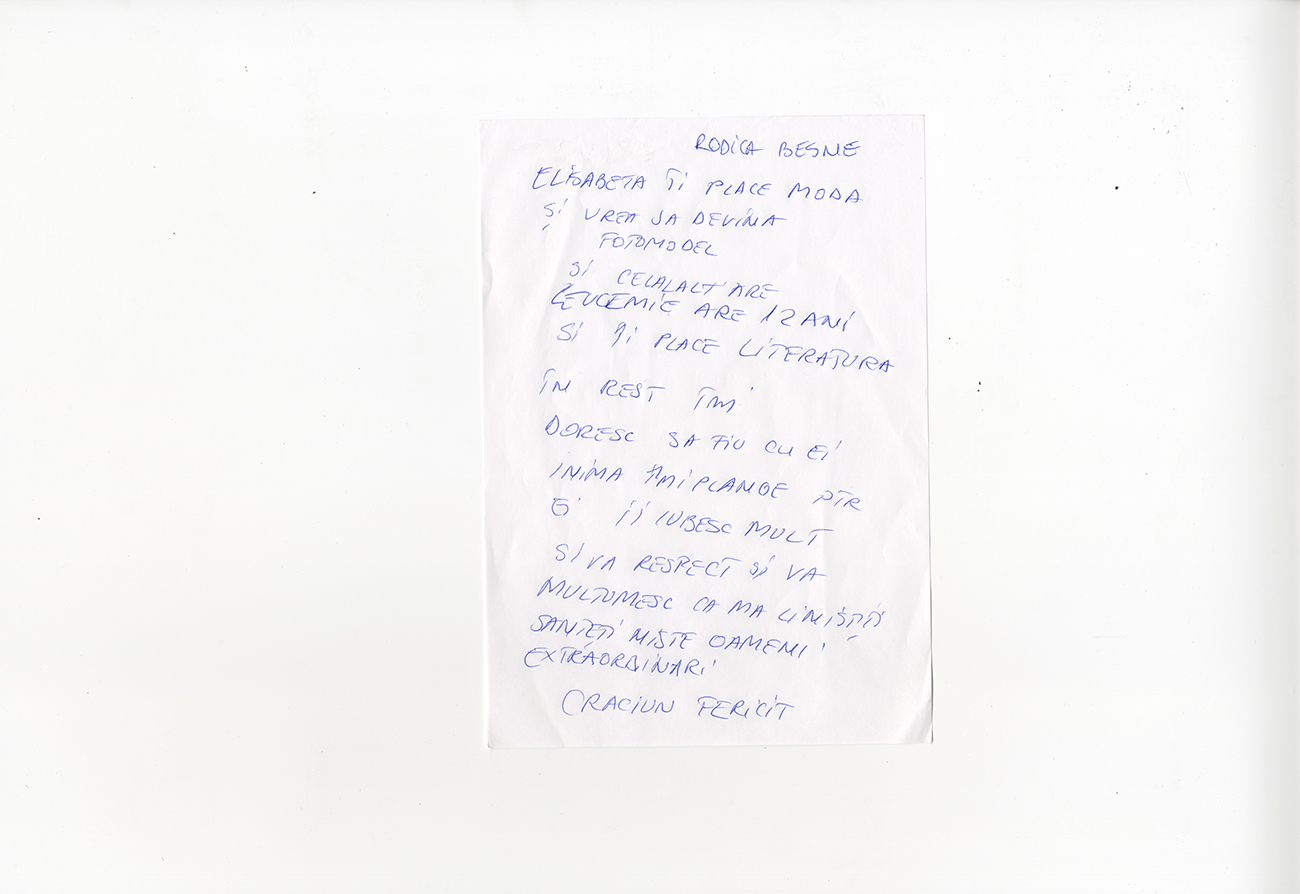 RODICA BESNE
ELISABETA ÎI PLACE MODA
ȘI VREA SA DEVINA
FOTOMODEL
SI CELALALT ARE
LEUCEMIE ARE 12 ANI
SI ÎI PLACE LITERATURA
ÎN REST ÎMI
DORESC SA FIU CU EI
INIMA ÎMI PLANGE PTR
EI ÎI IUBESC MULT
SI VA RESPECT SI VA
MULTUMESC CA MA LINIȘTIȚI
SANTETI NIȘTE OAMENI
EXTRAORDINARI
CRACIUN FERICIT